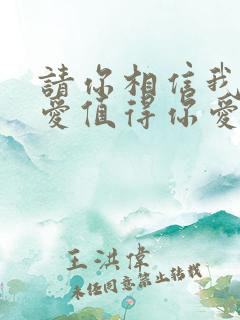 請你相信我
愛值得你愛
王洪偉
未經同意禁止轉載